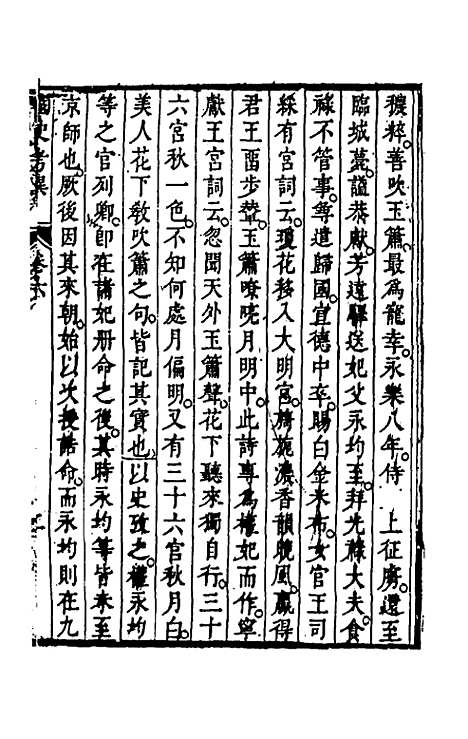 穠粹善吹玉簫最為寵幸永樂八年侍　上征虜還至
臨城薨謚恭獻芳遠驛送妃父永均至拜光祿大夫食
祿不管事等遣歸國宣德中卒賜白金米布女官王司
綵有宮詞云瓊花移入大明宮旖旎濃香韻晚風贏得
君王留步輦玉簫嘹喨月明中此詩專為權妃而作寧
獻王宮詞云忽聞天外玉簫聲花下聽來獨自行三十
六宮秋一色不知何處月偏明又有三十六宮秋月白
美人花下教吹簫之句皆記其實也以史攷之權永均
等之官列卿即在諸妃冊命之後其時永均等皆未至
京師也厥後因其來朝始以次授誥命而永均則在九
國史考異
卷六